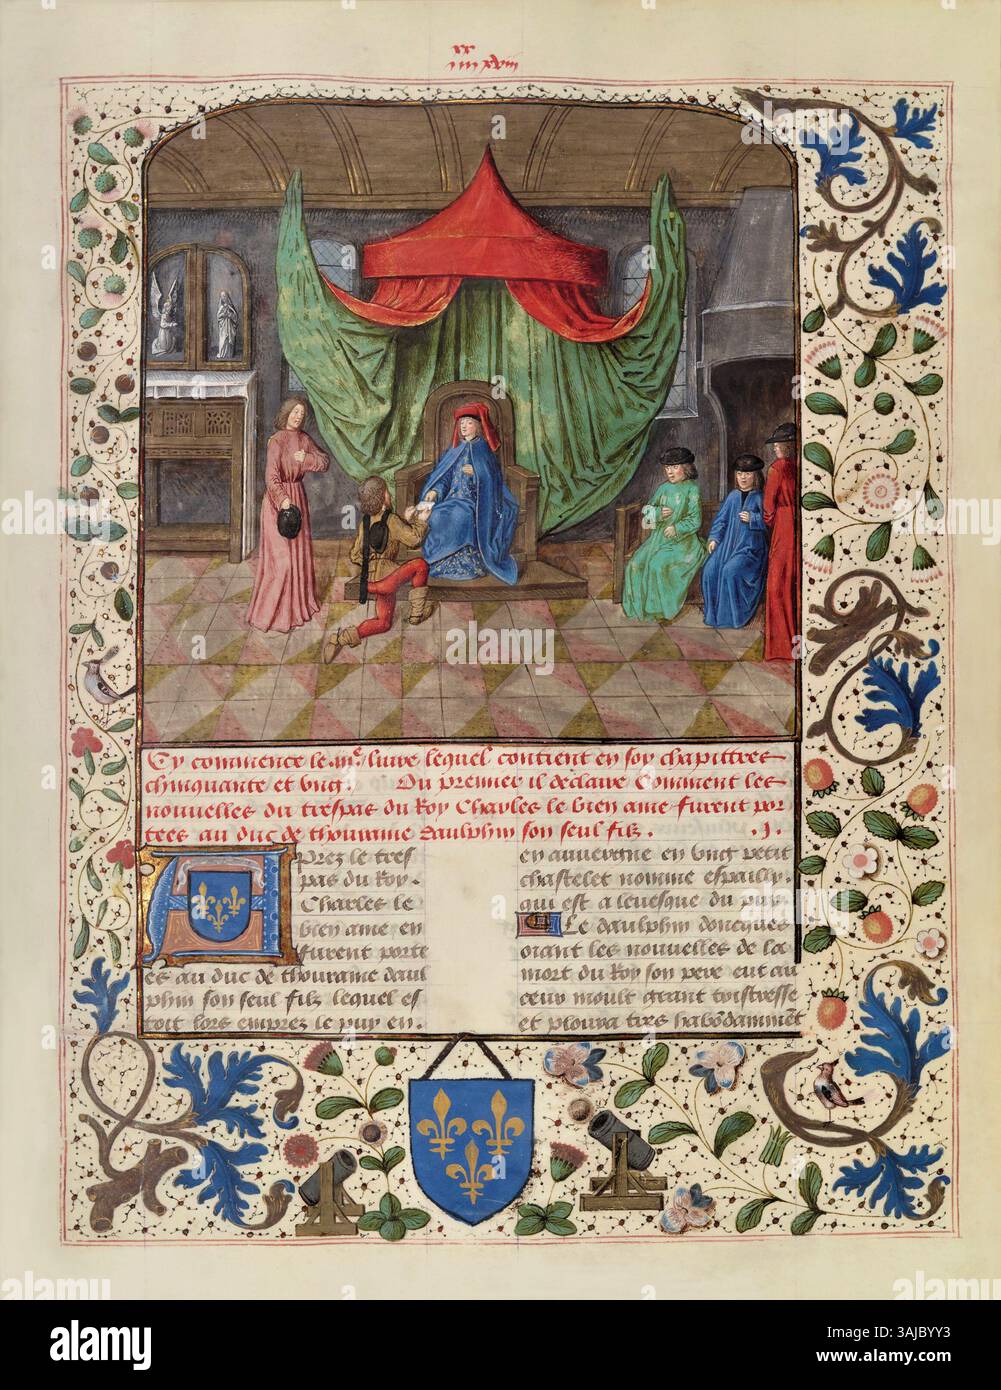 xx
iiii xviii
Cy commence le .iiije. livre lequel contient en soy chapittres
chinquante et ung. Ou premier il declaire Comment les
nouvelles du trespas du Roy Charles le bien ame furent por
tees au duc de thouraine daulphin son seul filz. .j.
Aprez le tres
pas du Roy.
Charles le
bien ame en
furent porte
es au duc de thouraine daul
phin son seul filz lequel es
toit lors emprez le puy en.
en auvergne en ung petit
chastelet nomme espailly.
qui est a levesque du puy.
Le daulphin doncques
oiant les nouvelles de la
mort du Roy son pere eut au
ceur moult grant tristresse
et ploura tres habondamment
alamy
Image ID: 3AJBYY3
www.alamy.com